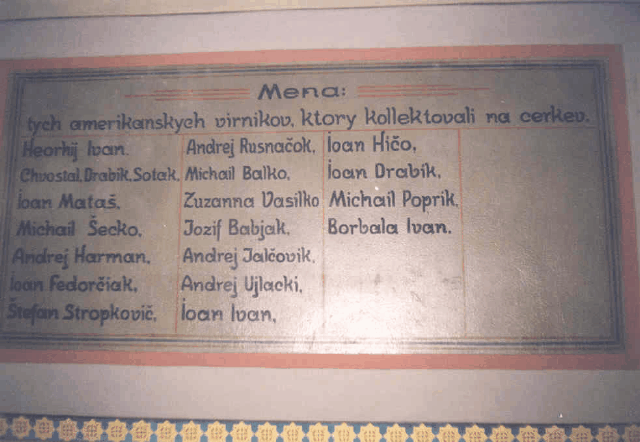 Mena:
tych amerikanskych virnikov, ktory kollektovali na cerkev.
Heorhij Ivan.
Chvostal, Drabik, Sotak,
Ioan Mataš,
Michail Šecko,
Andrej Harman,
Ioan Fedorčiak,
Štefan Stropkovič,
Andrej Rusnačok,
Michail Balko,
Zuzanna Vasilko
Jozif Babjak,
Andrej Jalčovik,
Andrej Ujlacki,
Ioan Ivan,
Ioan Hičo,
Ioan Drabik,
Michail Poprik,
Borbala Ivan.